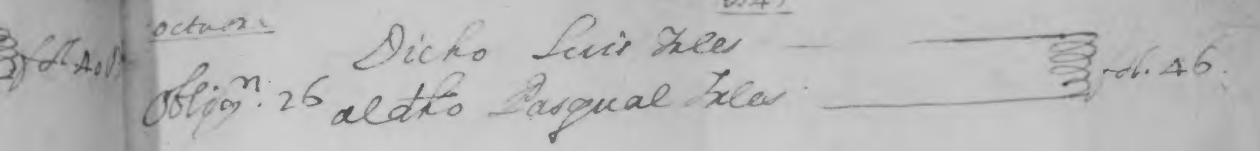 octubre
Dicho Luis Ules
Obligon. 26 aldho Pasqual Ules fol. 46.